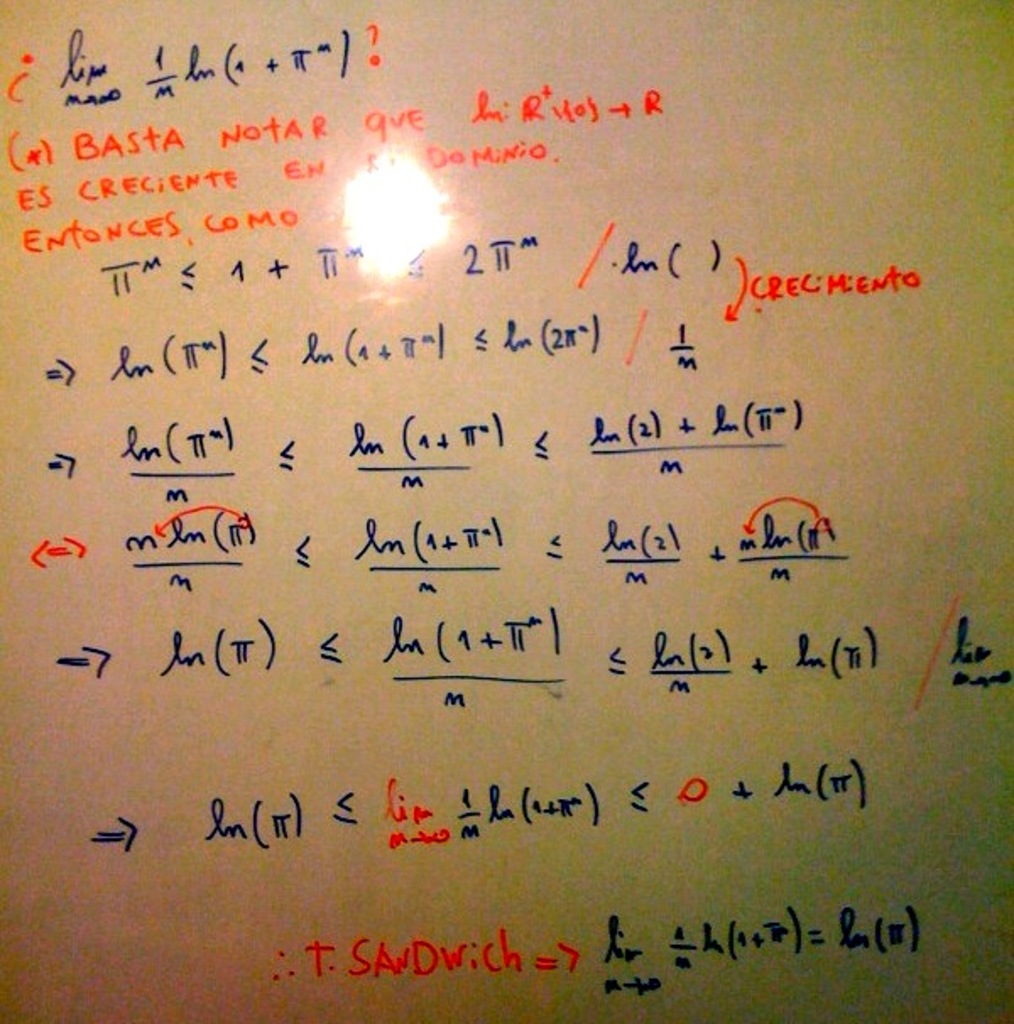 ¿ lim n→∞ 1/n ln(1 + π^n) ?
(*) BASTA NOTAR QUE ln: R^+\{0} → R
ES CRECIENTE EN DOMINIO.
ENTONCES, COMO
π^n ≤ 1 + π^n ≤ 2π^n / ·ln( ) CRECIMIENTO
⇒ ln(π^n) ≤ ln(1 + π^n) ≤ ln(2π^n) / 1/n
⇒ ln(π^n)/n ≤ ln(1 + π^n)/n ≤ (ln(2) + ln(π^n))/n
⇔ n ln(π)/n ≤ ln(1 + π^n)/n ≤ ln(2)/n + n ln(π)/n
⇒ ln(π) ≤ ln(1 + π^n)/n ≤ ln(2)/n + ln(π) / lim n→∞
⇒ ln(π) ≤ lim n→∞ 1/n ln(1+π^n) ≤ 0 + ln(π)
∴ T. SANDWich ⇒ lim n→∞ 1/n ln(1+π^n) = ln(π)